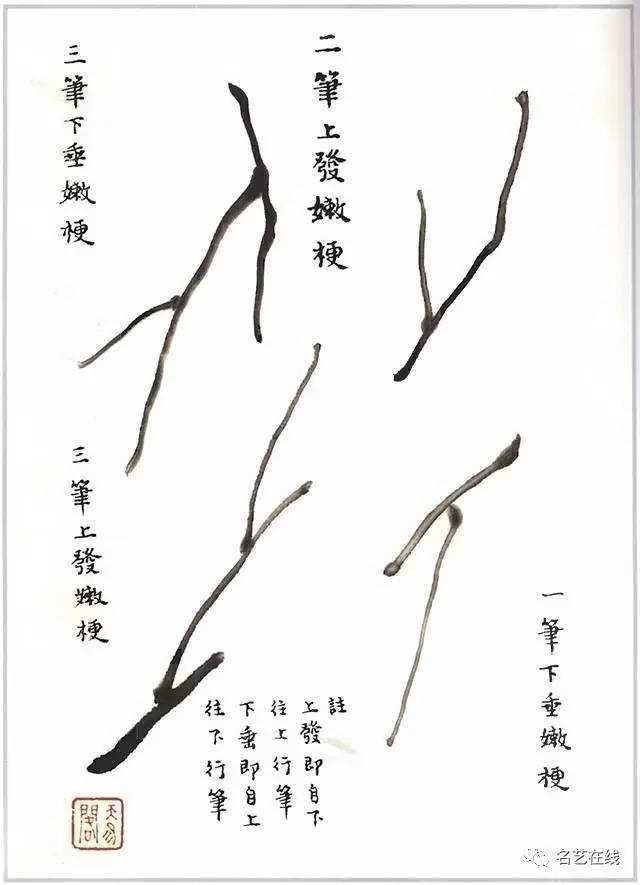 二筆上發嫩梗
三筆下垂嫩梗
一筆下垂嫩梗
三筆上發嫩梗
註
上發即自下
往上行筆
下垂即自上
往下行筆
名艺在线